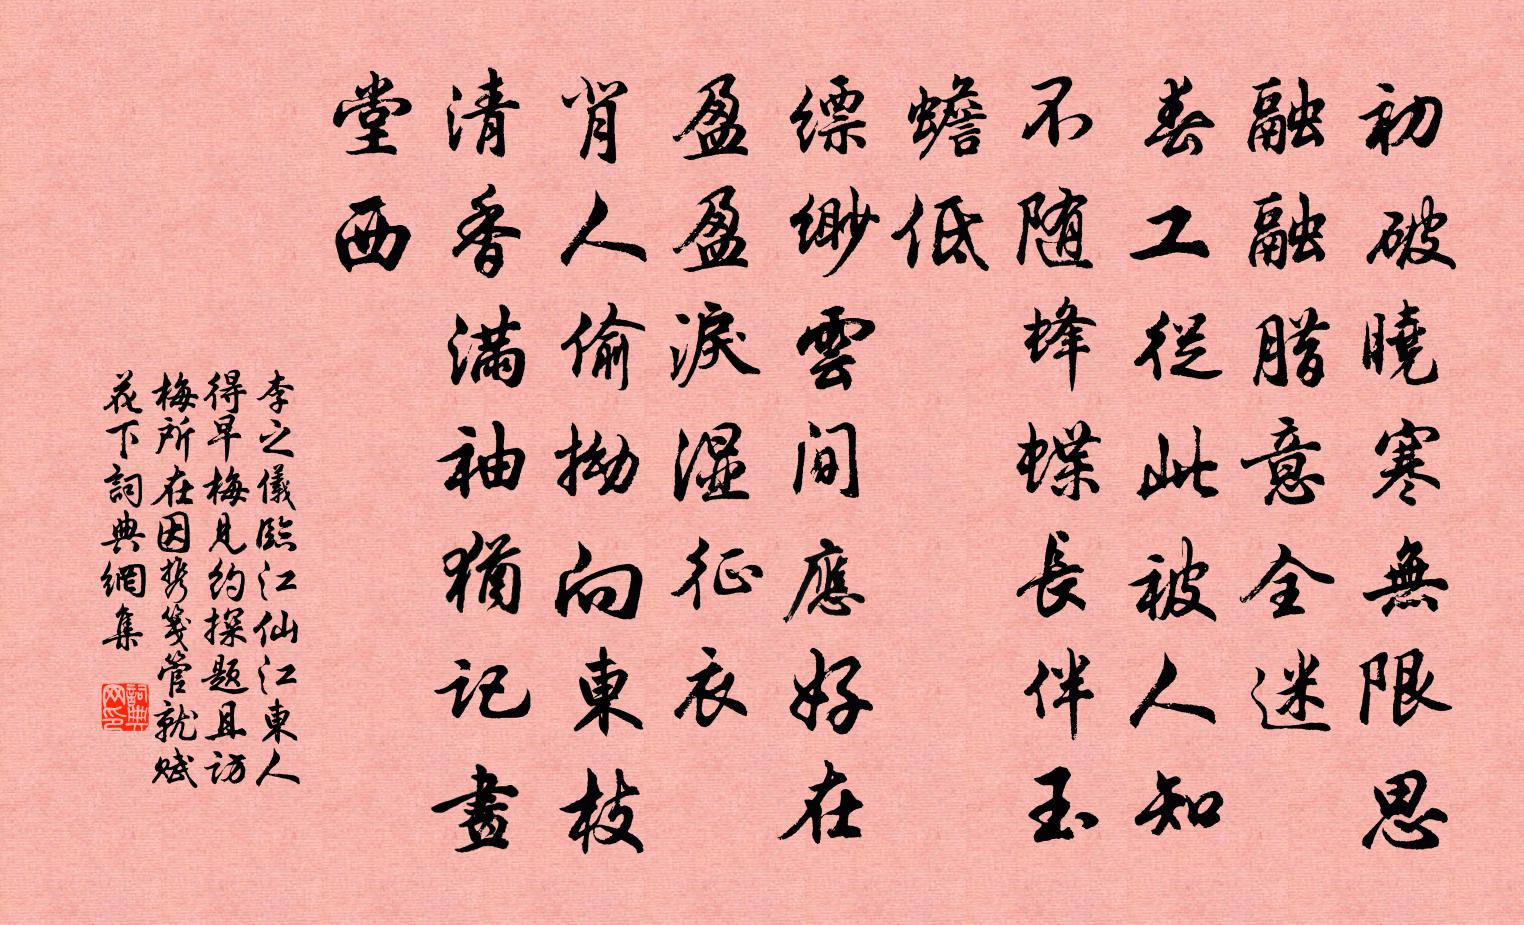 初破曉寒無限思
融融腊意全迷
春工從此被人知
不随蜂蝶長伴玉
蟾低
缥缈雲间應好在
盈盈淚湿征衣
肯人偷拗向東枝
清香满袖猶记畫
堂西
李之儀臨江仙江東人
得早梅見约探题且访
梅所在因携笺管就赋
花下詞典網集
詞典网印